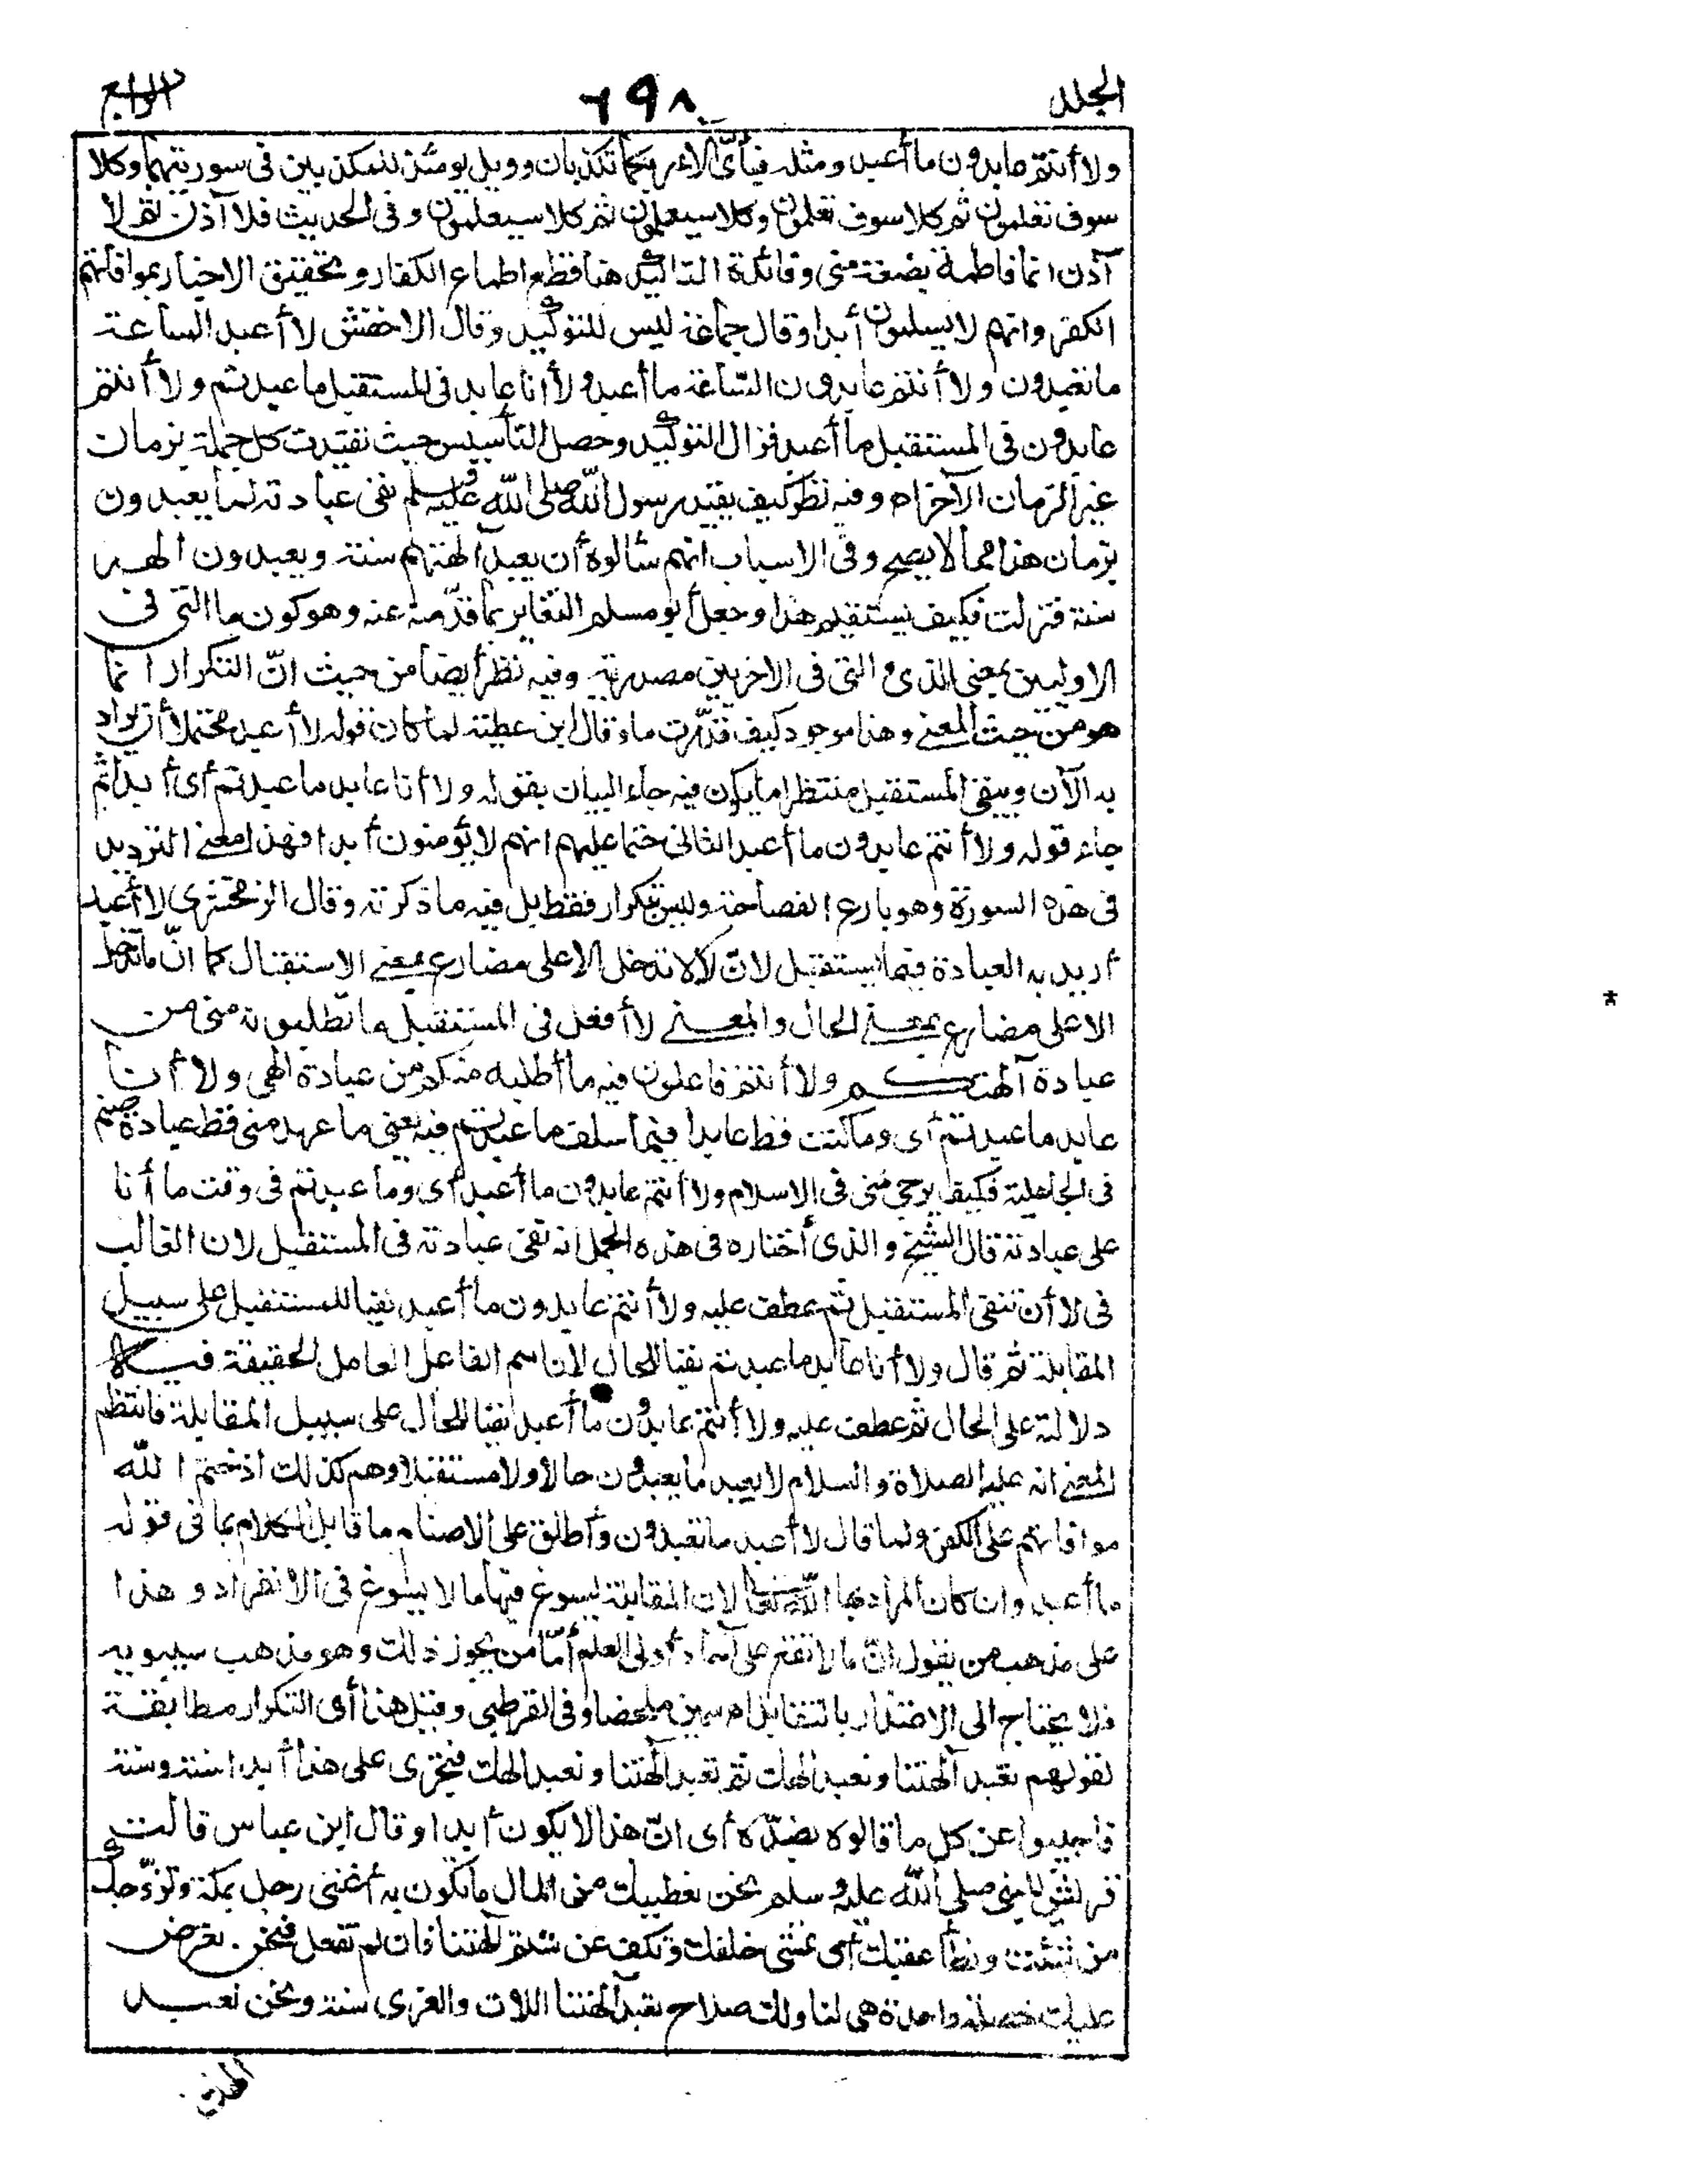 المجلد ٦٩٨ الرابع
ولا أنتم عابدون ما أعبد ومثله فبأىّ آلاء ربكما تكذبان وويل يومئذ للمكذبين فى سورتيهما وكلا
سوف تعلمون ثم كلا سوف تعلمون وكلا سيعلمون ثم كلا سيعلمون وفى الحديث فلا آذن ثم لا
آذن انما فاطمة بضعة منى وفائدة التاكيد هنا قطع اطماع الكفار وتحقيق الاخبار بموافاتهم
الكفر وانهم لا يسلمون أبدا وقال جماعة ليس للتوكيد وقال الاخفش لا أعبد الساعة
ما تعبدون ولا أنتم عابدون الساعة ما أعبد ولا أنا عابد فى المستقبل ما عبدتم ولا أنتم
عابدون فى المستقبل ما أعبد فزال التوكيد وحصل التأسيس حيث تقيدت كل جملة بزمان
غير الزمان الآخر اه وفيه نظر كيف يقيد رسول الله صلى الله عليه وسلم نفى عبادته لما يعبدون
بزمان هذا مما لا يصح وفى الاسباب انهم سألوه أن يعبد آلهتهم سنة ويعبدون الهه
سنة فنزلت فكيف يستقيم هذا وجعل أبو مسلم التغاير بما قدّمته عنه وهو كون ما التى فى
الاوليين بمعنى الذى والتى فى الاخريين مصدرية وفيه نظر أيضا من حيث انّ التكرار انما
هو من حيث المعنى وهذا موجود كيف قدّرت ما وقال ابن عطية لما كان قوله لا أعبد محتملا أن يراد
به الآن ويبقى المستقبل منتظرا ما يكون فيه جاء البيان بقوله ولا أنا عابد ما عبدتم أى أبدا ثم
جاء قوله ولا أنتم عابدون ما أعبد الثانى حتما عليهم انهم لا يؤمنون أبدا فهذا معنى الترديد
فى هذه السورة وهو بارع الفصاحة وليس بتكرار فقط بل فيه ما ذكرته وقال الزمخشرى لا أعبد
أريد به العبادة فيما يستقبل لانّ لا لا تدخل الا على مضارع بمعنى الاستقبال كما انّ ما لا تدخل
الا على مضارع بمعنى الحال والمعنى لا أفعل فى المستقبل ما تطلبونه منى من
عبادة آلهتكم ولا أنتم فاعلون فيه ما أطلبه منكم من عبادة الهى ولا أنا
عابد ما عبدتم أى وما كنت قط عابدا فيما سلف ما عبدتم فيه يعنى ما عهد منى قط عبادة صنم
فى الجاهلية فكيف يرجى منى فى الاسلام ولا أنتم عابدون ما أعبد أى وما عبدتم فى وقت ما أنا
على عبادته قال الشيخ والذى أختاره فى هذه الجمل انه نفى عبادته فى المستقبل لان الغالب
فى لا أن تنفى المستقبل ثم عطف عليه ولا أنتم عابدون ما أعبد نفيا للمستقبل على سبيل
المقابلة ثم قال ولا أنا عابد ما عبدتم نفيا للحال لان اسم الفاعل العامل الحقيقة فيه
دلالته على الحال ثم عطف عليه ولا أنتم عابدون ما أعبد نفيا للحال على سبيل المقابلة فانتظم
المعنى انه عليه الصلاة والسلام لا يعبد ما يعبدون حالا ولا مستقبلا وهم كذلك اذ ختم الله
موافاتهم على الكفر ولما قال لا أعبد ما تعبدون وأطلق على الاصنام ما قابل الكلام بما فى قوله
ما أعبد وان كان المراد بها الله تعالى لان المقابلة يسوغ فيها ما لا يسوغ فى الانفراد وهذا
على مذهب من يقول انّ ما لا تقع على آحاد أولى العلم أمّا من يجوز ذلك وهو مذهب سيبويه
فلا يحتاج الى الاعتذار بالتقابل اه سمين ملخصا وفى القرطبى وقيل هذا أى التكرار مطابقة
لقولهم تعبد آلهتنا ونعبد الهك ثم تعبد آلهتنا ونعبد الهك فنجرى على هذا أبدا سنة وسنة
فاجيبوا عن كل ما قالوه بضدّه أى انّ هذا لا يكون أبدا وقال ابن عباس قالت
قريش للنبى صلى الله عليه وسلم نحن نعطيك من المال ما تكون به أغنى رجل بمكة ونزوّجك
من شئت ونطأ عقبك أى نمشى خلفك وتكف عن شتم آلهتنا فان لم تفعل فنحن نعرض
عليك خصلة واحدة هى لنا ولك صلاح تعبد آلهتنا اللات والعزى سنة ونحن نعبد
*